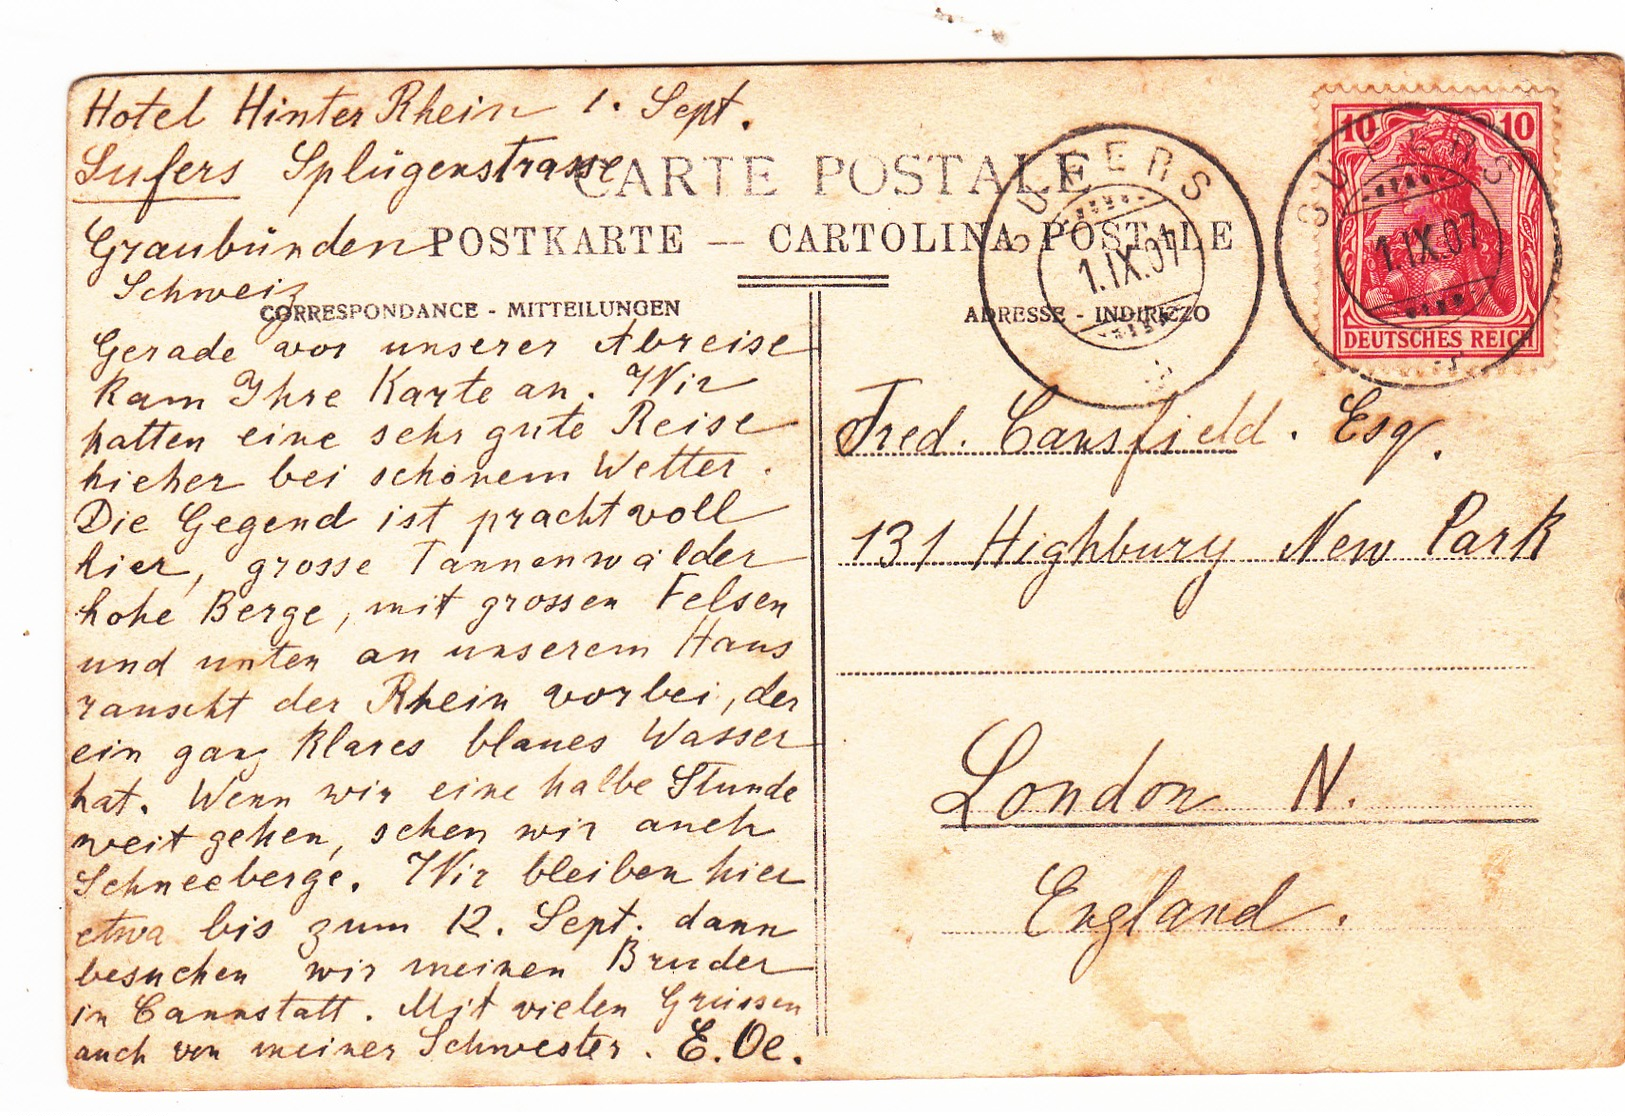 Hotel Hinter Rhein 1. Sept.
Sufers Splügenstrasse
Graubünden
Schweiz
CARTE POSTALE
POSTKARTE — CARTOLINA POSTALE
CORRESPONDANCE - MITTEILUNGEN
ADRESSE - INDIRIZZO
Gerade vor unserer Abreise
kam Ihre Karte an. Wir
hatten eine sehr gute Reise
hieher bei schönem Wetter.
Die Gegend ist prachtvoll
hier, grosse Tannenwälder
hohe Berge, mit grossen Felsen
und unten an unserem Haus
rauscht der Rhein vorbei, der
ein ganz klares blaues Wasser
hat. Wenn wir eine halbe Stunde
weit gehen, sehen wir auch
Schneeberge. Wir bleiben hier
etwa bis zum 12. Sept. dann
besuchen wir meinen Bruder
in Cannstatt. Mit vielen Grüssen
auch von meiner Schwester. E. Oe.
SUFERS
1.IX.07
SUFERS
1.IX.07
10 10
DEUTSCHES REICH
Fred. Cansfield. Esq.
131 Highbury New Park
London N.
England.